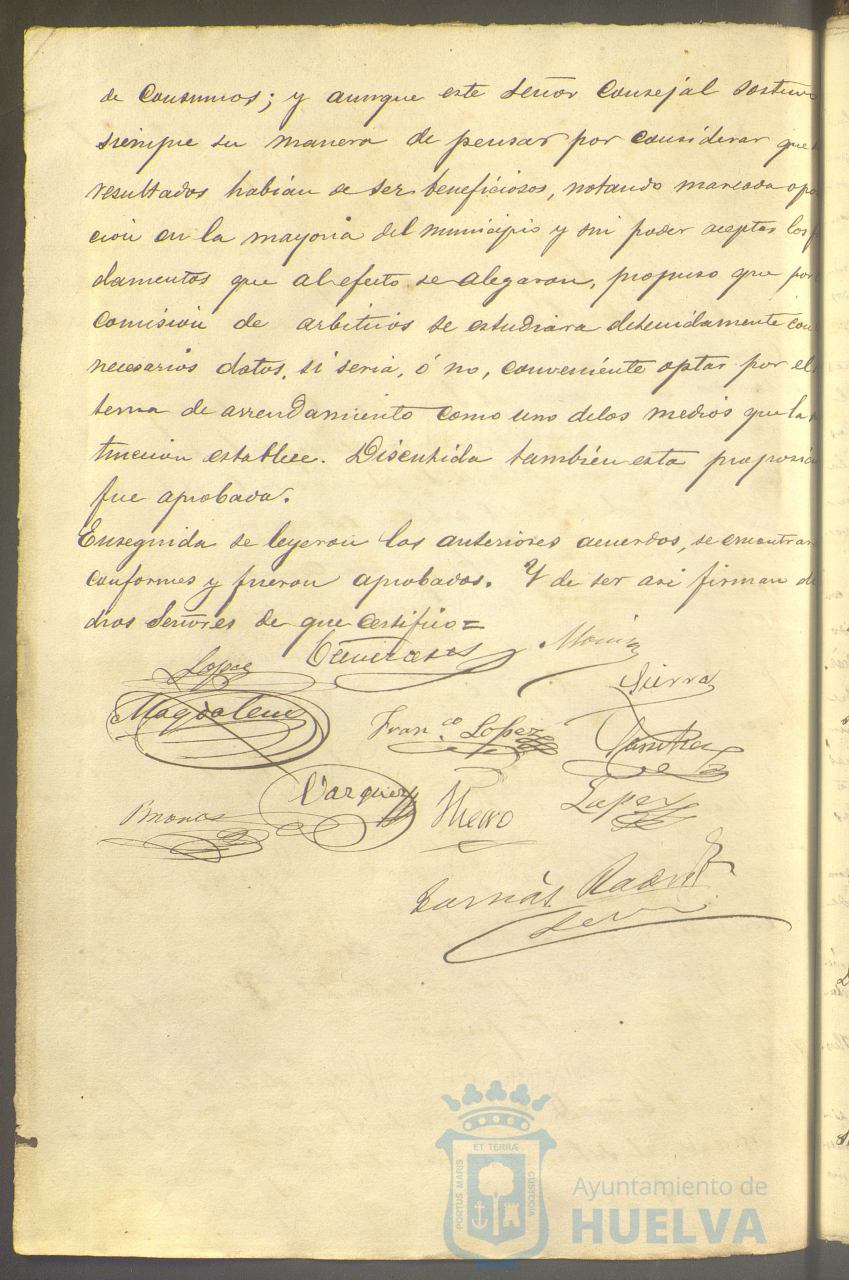 de Consumos; y aunque este Señor Consejal sostuvo
siempre su manera de pensar por considerar que
resultados habían de ser beneficiosos, notando marcada opo
cion en la mayoria del municipio y sin poder aceptar los
damentos que al efecto se alegaron, propuso que por
Comision de arbitrios se estudiara detenidamente con
necesarios datos, si seria, ó no, conveniente optar por el
tema de arrendamiento como uno de los medios que la
truccion establece. Discutida tambien esta proposi
fue aprobada.
Enseguida se leyeron los anteriores acuerdos, se encontraron
conformes y fueron aprobados. Y de ser asi firman
dhos Señores de que certifico=
Lopez y
Sierra
Magdalena Franco Lopez Sanchez
Vazquez Lopez
ET TERRÆ
PORTUS MARIS CUSTODIA
Ayuntamiento de
HUELVA